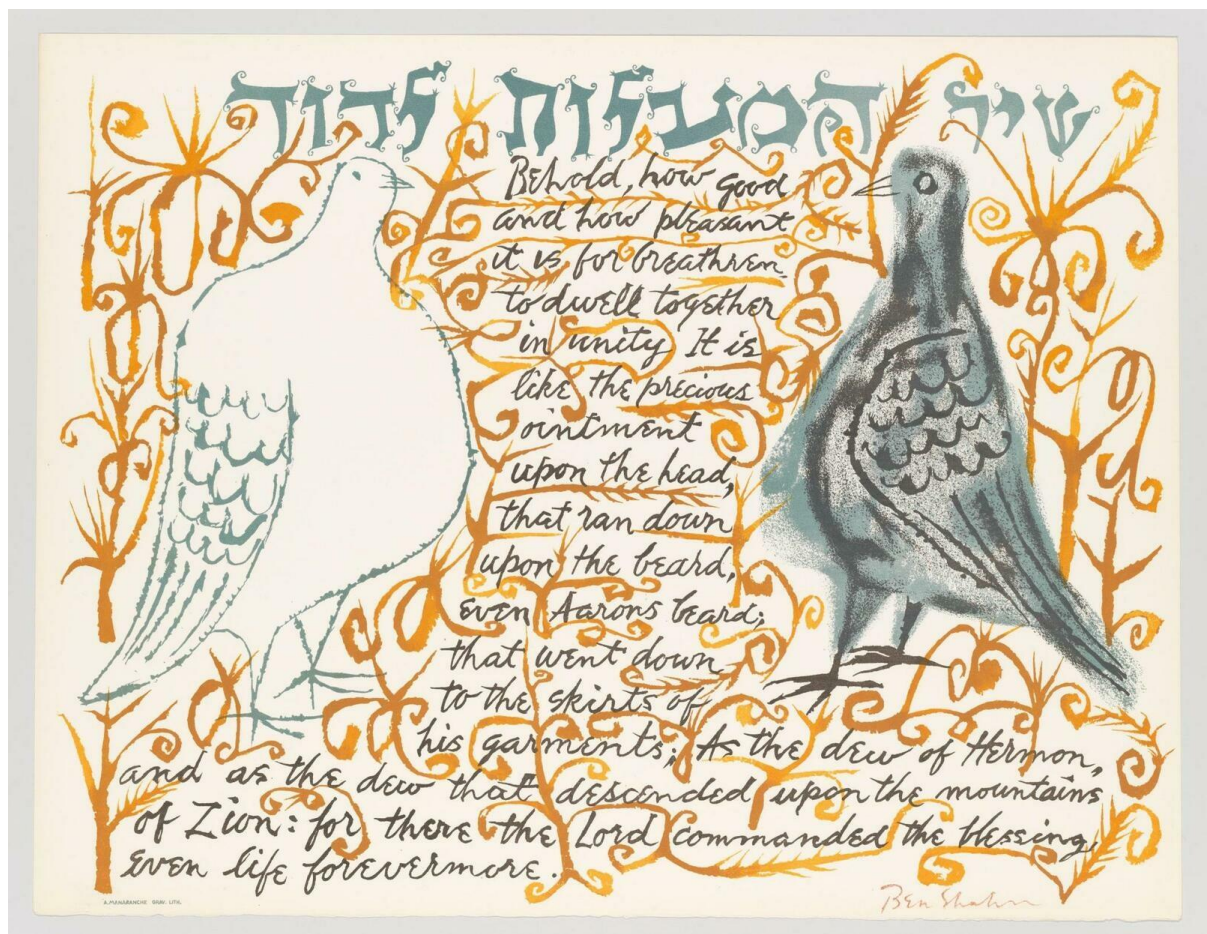 שיר המעלות לדוד
Behold, how good
and how pleasant
it is for breathren
to dwell together
in unity It is
like the precious
ointment
upon the head,
that ran down
upon the beard,
even Aarons beard;
that went down
to the skirts of
his garments; As the dew of Hermon,
and as the dew that descended upon the mountains
of Zion: for there the Lord commanded the blessing,
even life forevermore.
A. MANARANCHE GRAV. LITH.
Ben Shahn